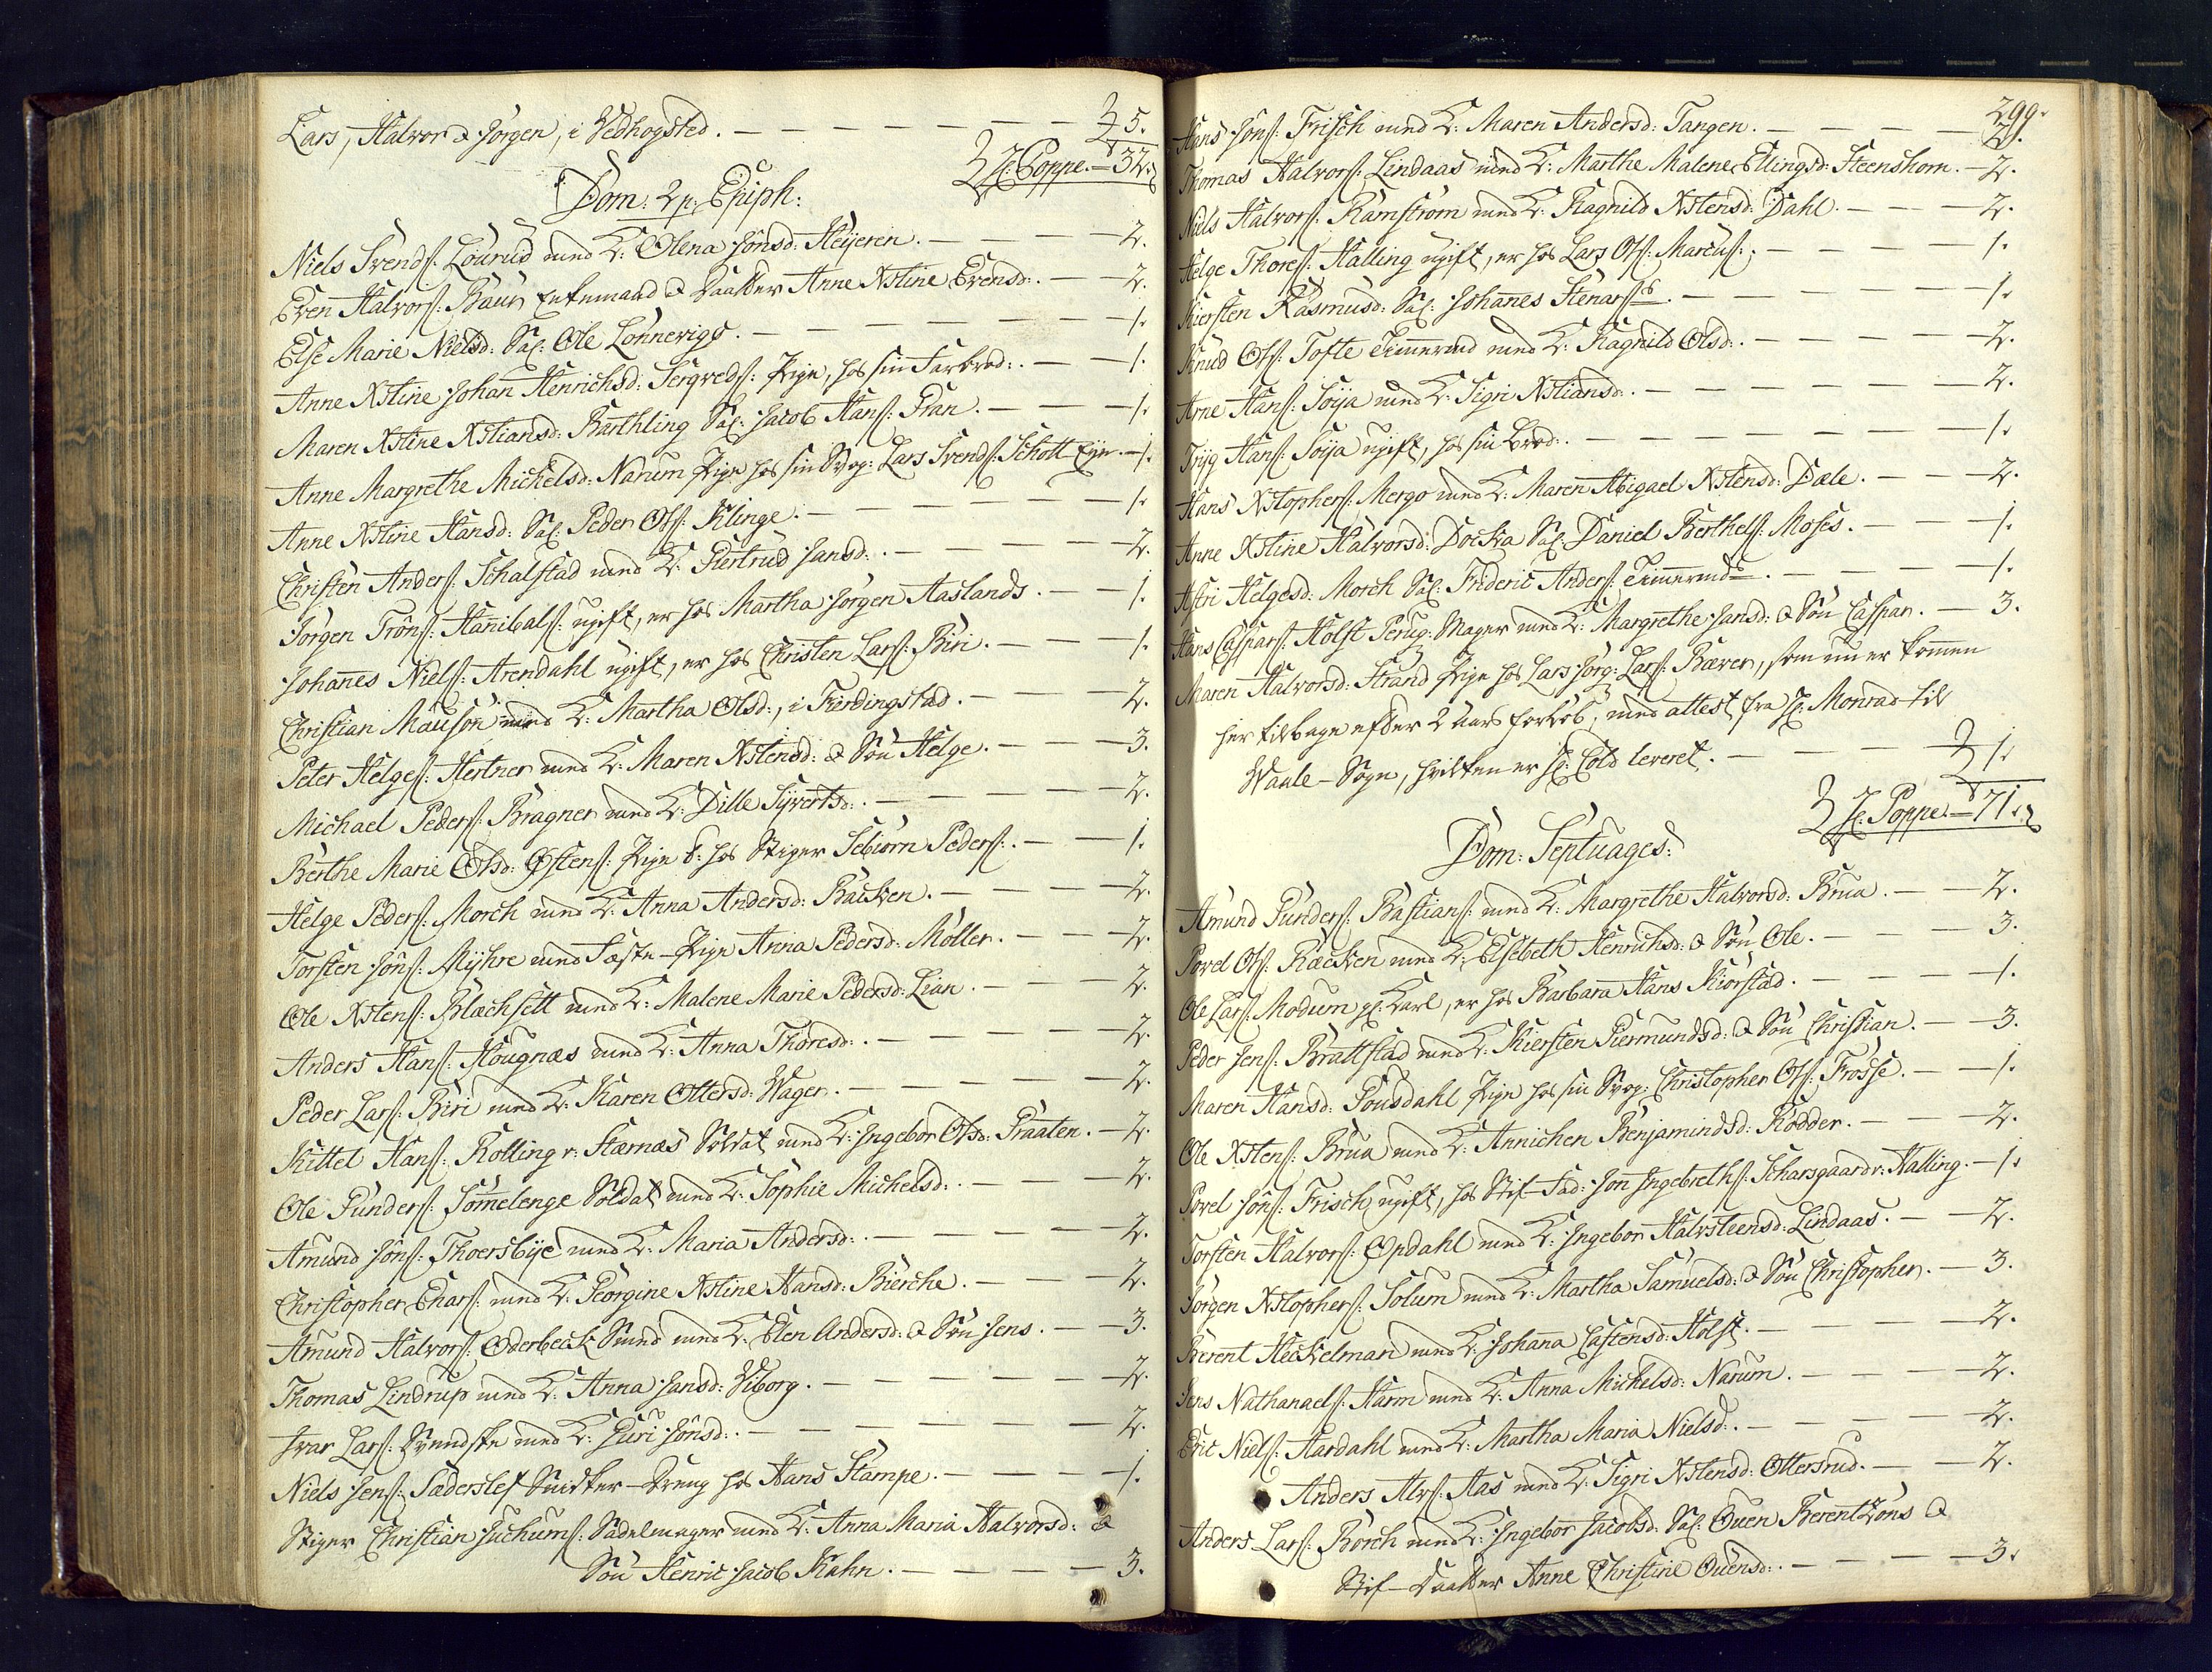 Lars, Halvor & Jörgen, i Vedhogsted. — 5.
H: Poppe. — 32.
Dom: 2 p. Epiph:
Niels Svends: Lourud med K: Olena Jönsd: Heyeren. — 2.
Even Halvors: Baur Enkemand & Daatter Anne Xstine Evensd:. — 2.
Else Marie Nielsd: Sal: Ole Lönnevigs. — 1.
Anne Xstine Johan Henrichsd: Seqveds: Pige, hos sin Farbrod:. — 1.
Maren Xstine Xstiansd: Barthling Sal: Jacob Hans: Gran. — 1.
Anne Margrethe Michelsd: Narum Pige hos sin Svog: Lars Svends: Schott — 1.
Anne Xstine Hansd: Sal: Peder Ols: Klinge. — 1.
Christen Anders: Schalstad med K: Giertrud Jansd:. — 2.
Jörgen Tröns: Hanibals: ugift, er hos Martha Jörgen Aaslands. — 1.
Johanes Niels: Arendahl ugift, er hos Christen Lars: Biri. — 1.
Christian Mauson med K: Martha Olsd:, i Fierdingstad. — 2.
Peter Helges: Hertner med K: Maren Xstensd: & Sön Helge. — 3.
Michael Peders: Bragner med K: Dille Syvertsd:. — 2.
Berthe Marie Olsd: Östens: Pige hos Stiger Sebiörn Peders:. — 1.
Helge Peders: Morch med K: Anna Andersd: Backen. — 2.
Torsten Jöns: Myhre med Fæste-Pige Anna Pedersd: Möller. — 2.
Ole Xstens: Blachsett med K: Malene Marie Pedersd: Lian. — 2.
Anders Hans: Hougnæs med K: Anna Thoresd:. — 2.
Peder Lars: Biri med K: Karen Ottersd: Wager. — 2.
Kittel Hans: Kolling v: Stærnæs Soldat med K: Ingebor Olsd: Praaten. — 2.
Ole Gunders: Somelenge Soldat med K: Sophie Michelsd:. — 2.
Amund Jöns: Thoersbye med K: Maria Andersd:. — 2.
Christopher Enars: med K: Georgine Xstine Hansd: Bierche. — 2.
Amund Halvors: Oderbeck Smed med K: Elen Andersd: & Sön Jens. — 3.
Thomas Lindrup med K: Anna Jansd: Viborg. — 2.
Ivar Lars: Svendske med K: Guri Jönsd:. — 2.
Niels Jens: Saderslef Snidker-Dreng hos Hans Stampe. — 1.
Stiger Christian Juchums: Sadelmager med K: Anna Maria Halvorsd: &
Sön Henric Jacob Kahn. — 3.
299.
Hans Jöns: Frisch med K: Maren Andersd: Tangen. — 2.
Thomas Halvors: Lindaas med K: Marthe Malene Ellingsd: Steenshorn. — 2.
Niels Halvors: Ramstrom med K: Ragnild Xstensd: Dahl. — 2.
Helge Thores: Halling ugift, er hos Lars Ols: Marcus:. — 1.
Kiersten Rasmusd: Sal: Johanes Stenars. — 1.
Knud Ols: Tofte Timermd med K: Ragnild Olsd:. — 2.
Arne Hans: Soya med K: Sigri Xstiansd:. — 2.
Tryg Hans: Soya ugift, hos sin Brod:. — 1.
Hans Xstophers: Mergo med K: Maren Abigael Xstensd: Dæle. — 2.
Anne Xstine Halvorsd: Docka Sal: Daniel Berthels: Moses. — 1.
Astri Helgesd: Morch Sal: Frideric Anders: Timermds. — 1.
Hans Caspars: Holst Perug-Mager med K: Margrethe Jansd: & Sön Caspar. — 3.
Maren Halvorsd: Strand Pige hos Lars Jörg: Lars: Ræver, som nu er komen
her tilbage efter 2 aars forlöb, med attest fra H: Monrad til
Waale-Sogn, hvilken er H: Cold leveret. — 1.
H: Poppe. — 71.
Dom: Septuages:
Amund Gunders: Bastians: med K: Margrethe Halvorsd: Brua. — 2.
Povel Ols: Racken med K: Elsebeth Henrichsd: & Sön Ole. — 3.
Ole Lars: Modum gl: Karl, er hos Barbara Hans Kiörstad. — 1.
Peder Jens: Brattstad med K: Kiersten Giermundsd: & Sön Christian. — 3.
Maren Hansd: Gousdahl Pige hos sin Svog: Christopher Ols: Frosse. — 1.
Ole Xstens: Brua med K: Annichen Benjamindsd: Rödder. — 2.
Povel Jöns: Frisch, ugift, hos Stif-Fad: Jon Ingebreths: Scharsgaard v: Halling. — 1.
Torsten Halvors: Opdahl med K: Ingebor Halvsteensd: Lindaas. — 2.
Jörgen Xstophers: Solum med K: Martha Samuelsd: & Sön Christopher. — 3.
Berent Heckelman med K: Johana Castensd: Holst. — 2.
Jens Nathanaels: Harm med K: Anna Michelsd: Narum. — 2.
Eric Niels: Hardahl med K: Martha Maria Nielsd:. — 2.
Anders Alvs: Aas med K: Sigri Xstensd: Ottersrud. — 2.
Anders Lars: Borch med K: Ingebor Jacobsd: Sal: Ouen Berentzöns &
Stif-Daatter Anne Christine Ouensd:. — 3.